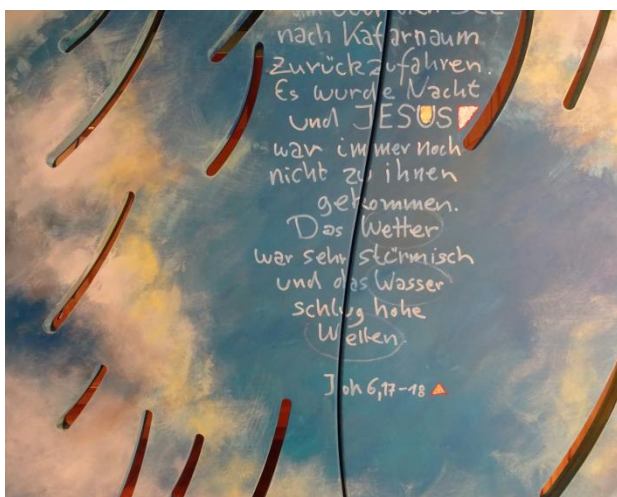 um
nach Kafarnaum
zurückzufahren.
Es wurde Nacht
und JESUS
war immer noch
nicht zu ihnen
gekommen.
Das Wetter
war sehr stürmisch
und das Wasser
schlug hohe
Wellen.
Joh 6,17-18